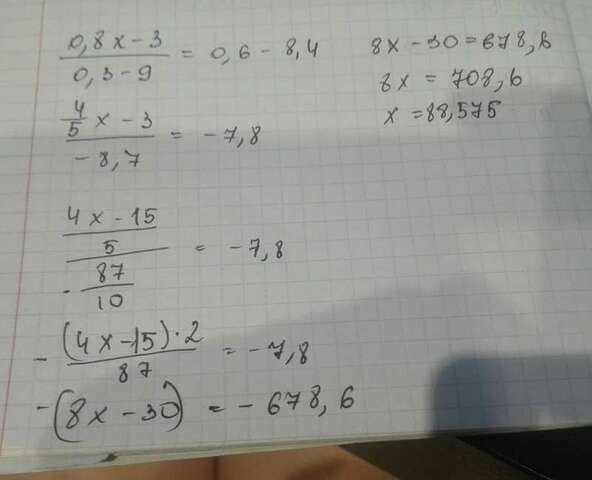 (0,8x - 3)/(0,3 - 9) = 0,6 - 8,4
(4/5 x - 3)/(-8,7) = -7,8
((4x - 15)/5)/(-87/10) = -7,8
-((4x - 15)·2)/87 = -7,8
-(8x - 30) = -678,6
8x - 30 = 678,6
8x = 708,6
x = 88,575